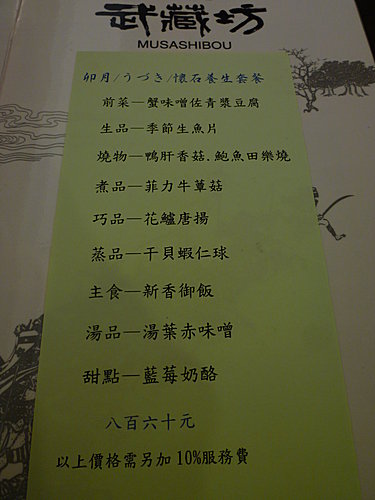 武藏坊
MUSASHIBOU
卯月/うづき/懷石養生套餐
前菜—蟹味噌佐青漿豆腐
生品—季節生魚片
燒物—鴨肝香菇.鮑魚田樂燒
煮品—菲力牛蕈菇
巧品—花鱸唐揚
蒸品—干貝蝦仁球
主食—新香御飯
湯品—湯葉赤味噌
甜點—藍莓奶酪
八百六十元
以上價格需另加10%服務費